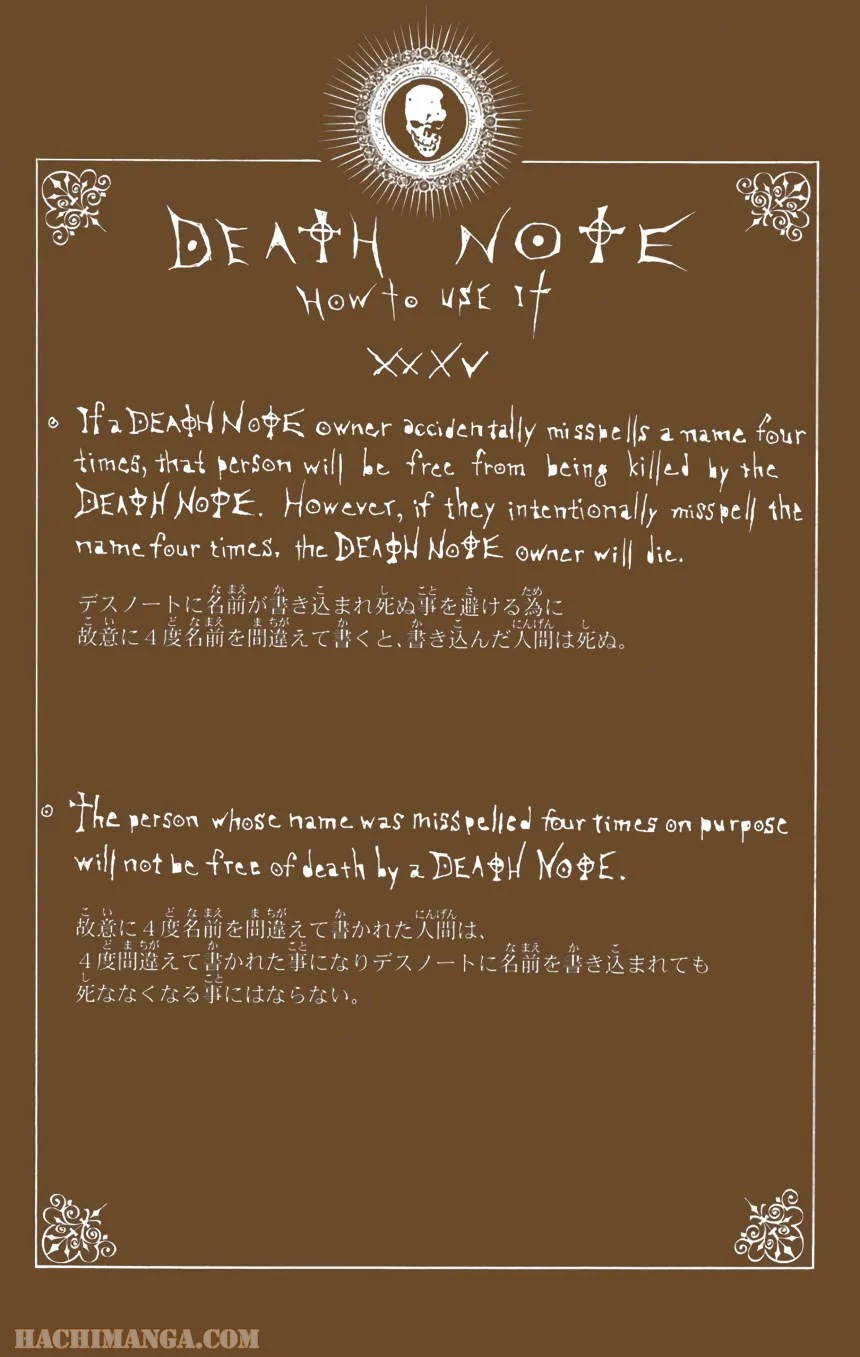 DEATH NOTE
HOW to USE It
XXXV
If a DEATH NOTE owner accidentally misspells a name four
times, that person will be free from being killed by the
DEATH NOTE. However, if they intentionally misspell the
name four times, the DEATH NOTE owner will die.
デスノートに名前が書き込まれ死ぬ事を避ける為に
故意に４度名前を間違えて書くと、書き込んだ人間は死ぬ。
The person whose name was misspelled four times on purpose
will not be free of death by a DEATH NOTE.
故意に４度名前を間違えて書かれた人間は、
４度間違えて書かれた事になりデスノートに名前を書き込まれても
死ななくなる事にはならない。
HACHIMANGA.COM